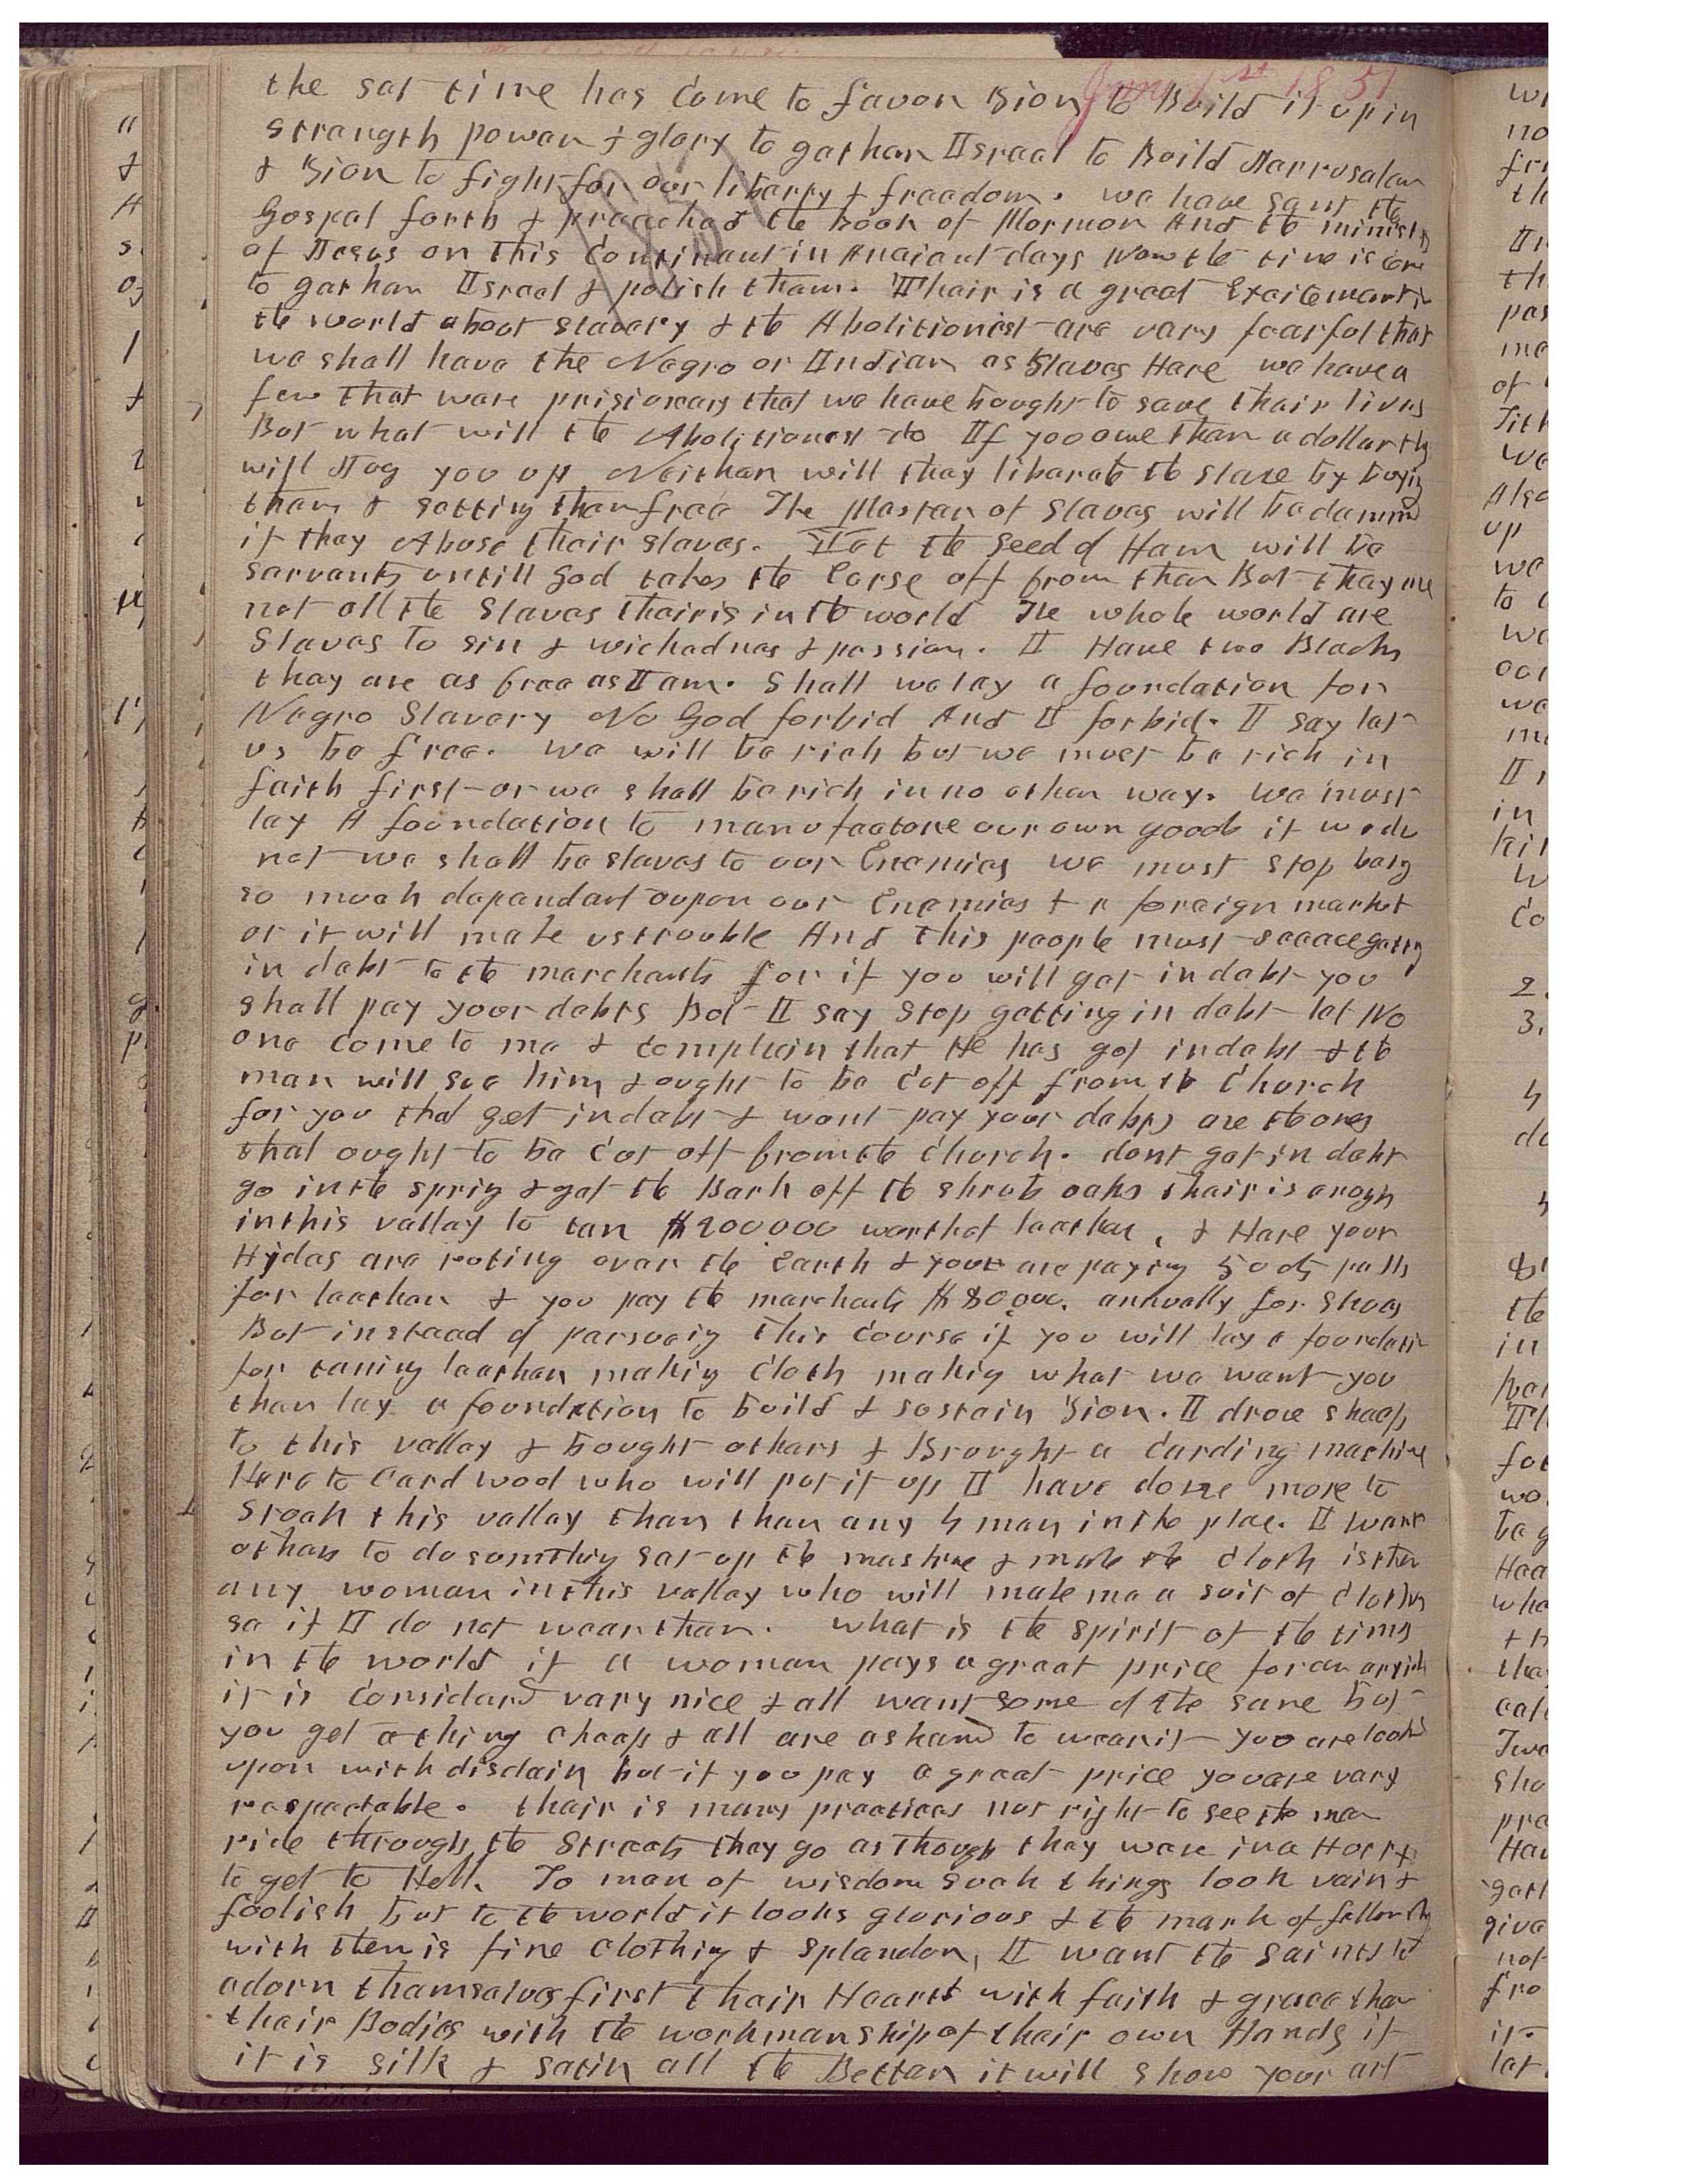 June 1st 1851
the set time has Come to favor Zion to Build it up in
strength power & glory to gather Israel to Build Jerrusalem
& Zion to fight for our liberty & freedom. we have sent the
Gospel forth & preached the Book of Mormon And the ministry
of Jesus on this Continant in Anciant days Now the time is come
to gather Israel & polish them. Thair is a great Excitement in
the world about slavery & the Abolitionist are very fearful that
we shall have the Negro or Indian as Slaves Here we have a
few that ware prisioners that we have bought to save thair lives
But what will the Abolitionest do If you owe them a dollar they
will Jog you up Neither will they liberate the slave by buying
them & setting them free The Master of Slaves will be damned
if they Abuse thair slaves. Yet the seed of Ham will be
servants untill God takes the Curse off from them But they are
not all the Slaves thair is in the world The whole world are
Slaves to sin & wickednes & passion. I Have two Blacks
they are as free as I am. Shall we lay a foundation for
Negro Slavery No God forbid And I forbid. I say let
us be free. we will be rich but we must be rich in
faith first or we shall be rich in no other way. we must
lay A foundation to manufacture our own goods if we do
not we shall be slaves to our Enemies we must stop being
so much dependant oupon our Enemies & a foreign market
or it will make us trouble And this people must seace getting
in debt to the merchants for if you will get in debt you
shall pay your debts But I say stop getting in debt let No
one come to me & complain that He has got in debt & the
man will sue him & ought to be Cut off from the Church
for you that get in debt & wont pay your debts are the ones
that ought to be Cut off from the Church. dont get in debt
go in the spring & get the Bark off the shrub oaks thair is enough
in this valley to tan $200000 worth of leather, & Here your
Hydes are roting over the Earth & your are paying 50 cts pr lb
for leather & you pay the merchants $80,000, annually for shoes
But instead of persueing this Course if you will lay a foundation
for taning leather making Cloth making what we want you
than lay a foundation to build & sustain Zion. I drove sheep
to this valley & bought others & Brought a Carding machine
Here to Card wool who will put it up I have done more to
stock this valley than than any 4 men in the place. I want
others to do something set up the mashine & make the Cloth is ther
any woman in this valley who will make me a suit of Clothes
se if I do not wear them. what is the spirit of the times
in the world if a woman pays a great price for an article
it is Considerd very nice & all want some of the same but
you get a thing cheap & all are ashamd to wear it you are lookd
upon with disdain but if you pay a great price you are very
respectable. thair is many practices not right to see the men
ride through the Streets they go as though they ware in a Hurry
to get to Hell. To men of wisdom such things look vain &
foolish but to the world it looks glorious & the mark of fellowship
with them is fine Clothing & splendor, I want the saints to
adorn themselves first thair Hearts with faith & grace than
thair Bodies with the workmanship of thair own Hands if
it is silk & satin all the Better it will show your art